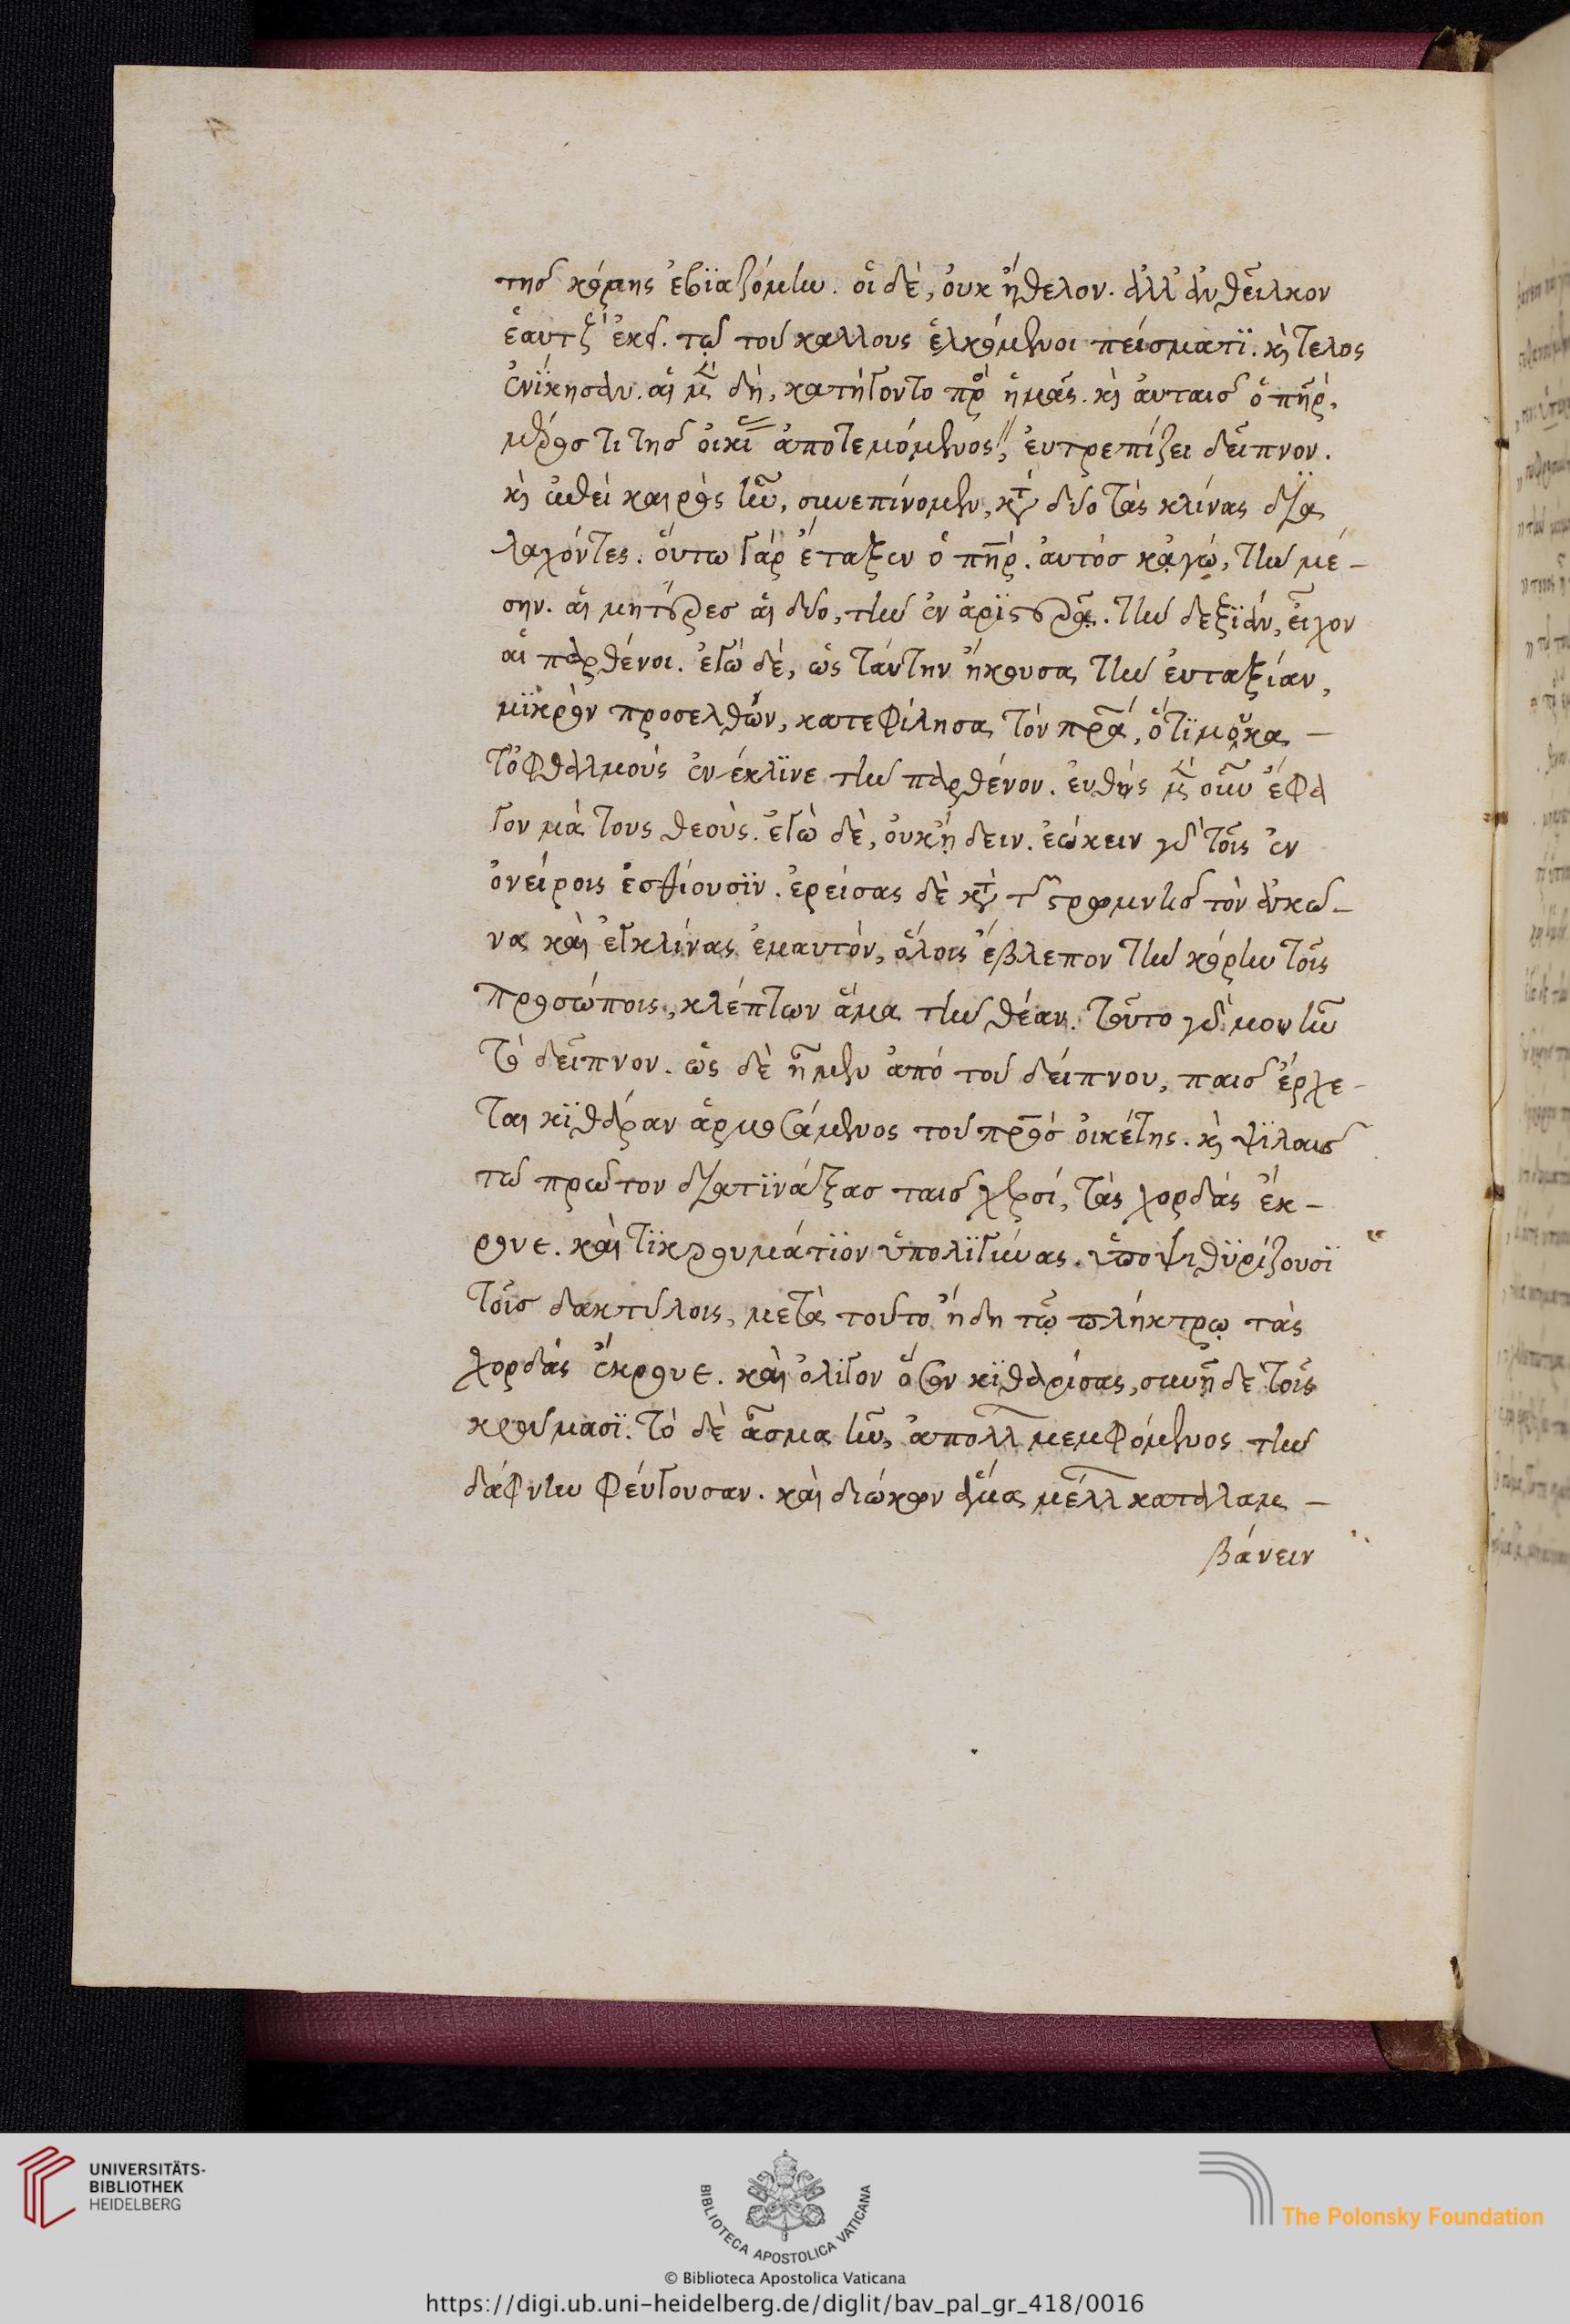 της κόρης ἐβϊαζόμην. οἱ δὲ, οὐκ ἤθελον. ἀλλ' ἀνθεῖλκον
ἑαυτοὺς ἐκεῖ. τῷ τοῦ καλλους ἑλκόμενοι πείσματϊ. κὶ τελος
ἐνίκησαν. αἱ μὲν δὴ, κατήγοντο πρὸ ἡμᾶς. κὶ ἀυταισ ὁ πηρ,
μέρος τι τῆσ οἰκί ἀποτεμόμενος, ἐυτρεπίζει δεῖπνον.
κὶ ἐπεὶ καιρὸς ἦν, συνεπίνομεν, κτ δύο τὰς κλίνας δια
λαχόντες. οὕτω γὰρ ἔταξεν ὁ πηρ. ἀυτόσ κἀγὼ, τὴν μέ-
σην. αἱ μητέρεσ αἱ δύο, τὴν ἐν ἀρϊστερᾷ. τὴν δεξϊὰν, εἶχον
αἱ παρθένοι. ἐγὼ δὲ, ὡς τάυτην ἤκουσα τὴν ἐυταξίαν,
μϊκρὸν προσελθὼν, κατεφίλησα τὸν πρα, ὅτϊ μου κα-
τ' ὀφθαλμοὺς ἐνέκλϊνε τὴν παρθένον. ἐυθὺς μὲν οὖν ἔφα
γον μὰ τους θεοὺς. ἐγὼ δὲ, οὐκ ἤδειν. ἐώκειν γὰρ τοῖς ἐν
ὀνείροις ἐσθίουσϊν. ἐρείσας δὲ κτ τ στρωμνῆσ τὸν ἀγκω-
να καὶ ἐγκλίνας ἐμαυτὸν, ὅλοις ἔβλεπον τὴν κόρην τοῖς
προσώποις, κλέπτων ἅμα τὴν θέαν. τοῦτο γὰρ μου ἦν
τὸ δεῖπνον. ὡς δὲ ἦμεν ἀπὸ τοῦ δείπνου, παισ ἔρχε-
ται κϊθάραν ἁρμοσάμενος τοῦ προσ οἰκέτης. κὶ ψϊλαισ
τὸ πρῶτον διατϊνάξασ ταισ χερσί, τὰς χορδὰς ἔκ-
ρουε. καὶ τϊ κρουμάτϊον ὑπολϊγήνας. ὑποψιθϋρίζουσϊ
τοῖσ δακτύλοις, μετὰ τοῦτο ἤδη τῷ πλήκτρῳ τὰς
χορδὰς ἔκρουε. καὶ ὀλίγον ὅσον κϊθαρίσας, συνῇδε τοῖς
κρούμασϊ. τὸ δὲ ᾆσμα ἦν, ἀπολλ μεμφόμενος τὴν
δάφνην φέυγουσαν. καὶ διώκων ἅμα μέλλ καταλαμ-
βάνειν
UNIVERSITÄTS-
BIBLIOTHEK
HEIDELBERG
BIBLIOTECA APOSTOLICA VATICANA
The Polonsky Foundation
© Biblioteca Apostolica Vaticana
https://digi.ub.uni-heidelberg.de/diglit/bav_pal_gr_418/0016